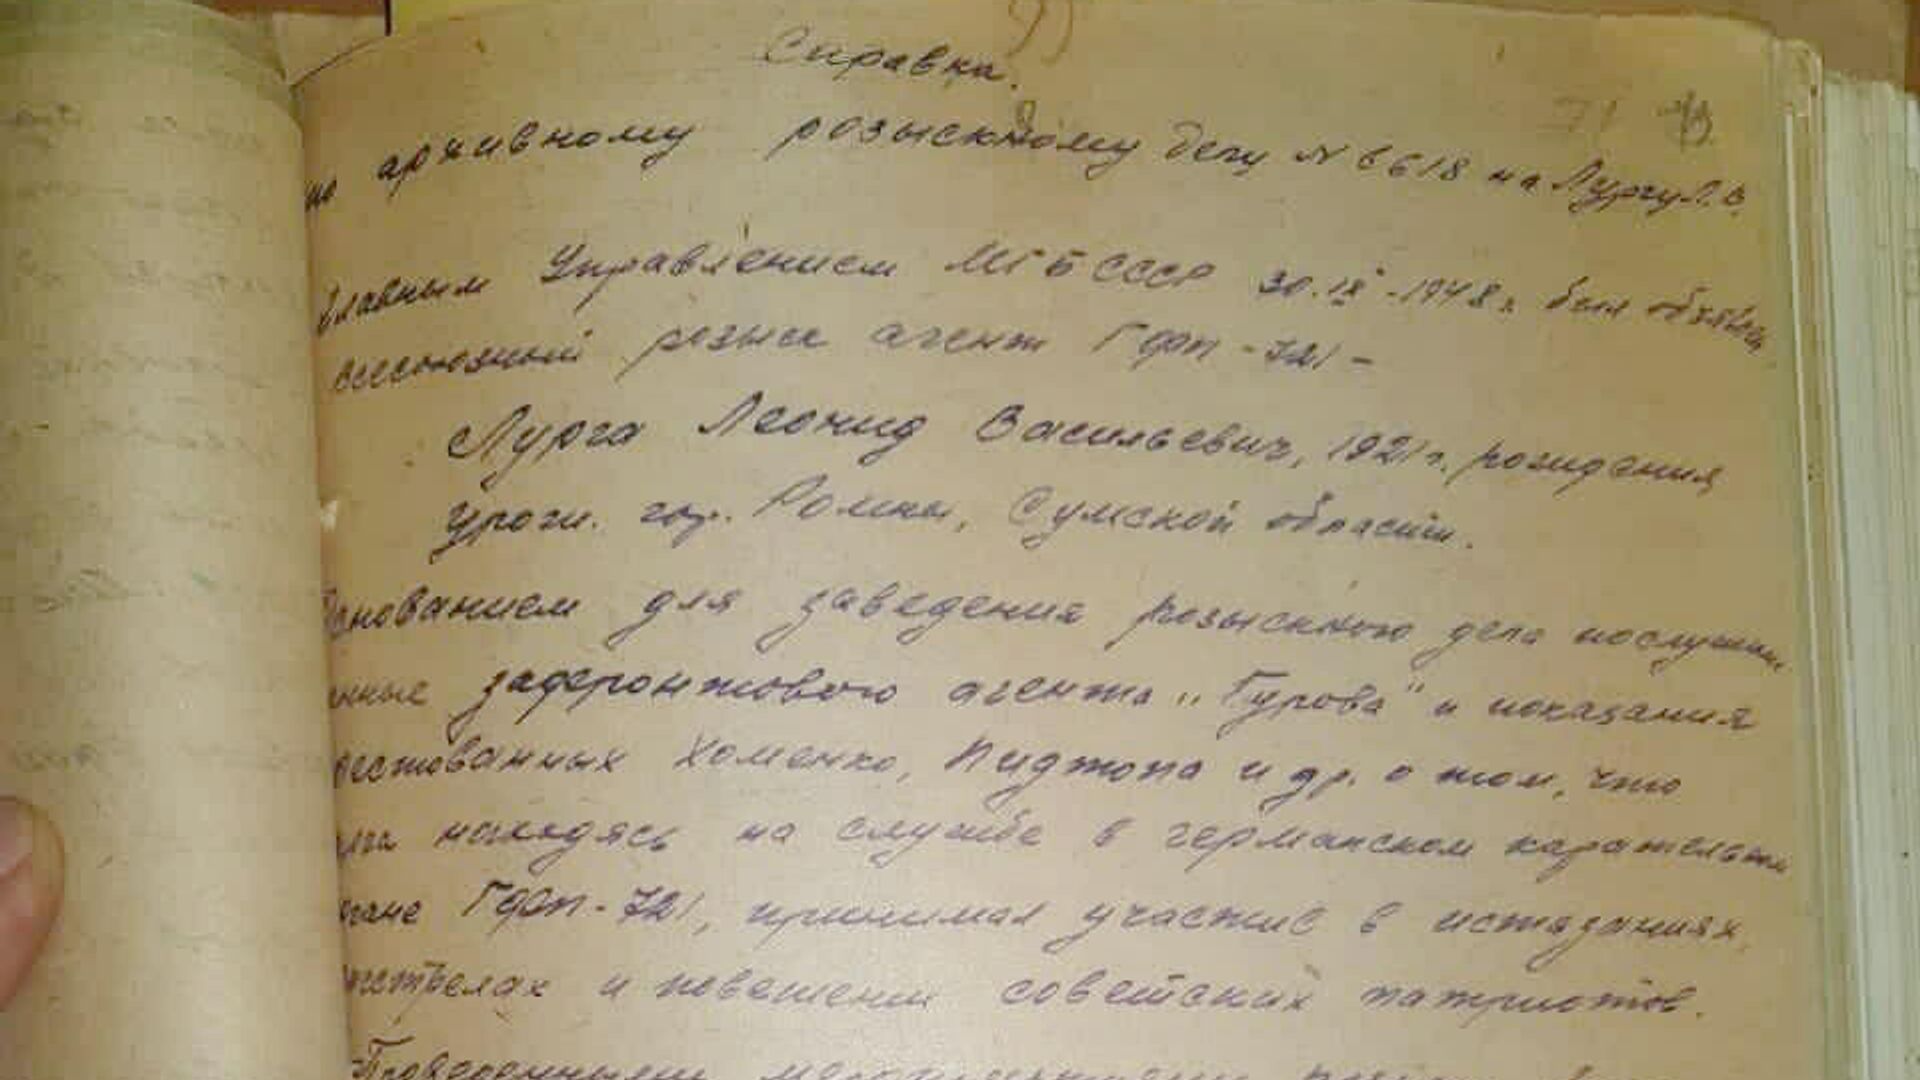 Справка.
по архивному розыскному делу N 6618 на Лургу Л.В.
Главным Управлением МГБ СССР 30.IX-1948г. был объявлен
всесоюзный розыск агент ГФП-721-
Лурга Леонид Васильевич, 1921 г. рождения
урож. гор. Ромны, Сумской области.
Основанием для заведения розыскного дела послужили
нные зафронтового агента „Гурова" и показания
рестованных Хоменко, Пиджопа и др. о том, что
рга находясь на службе в германском карательном
ргане ГФП-721, принимал участие в истязаниях,
расстрелах и повешении советских патриотов.
Проведенными мероприятиями